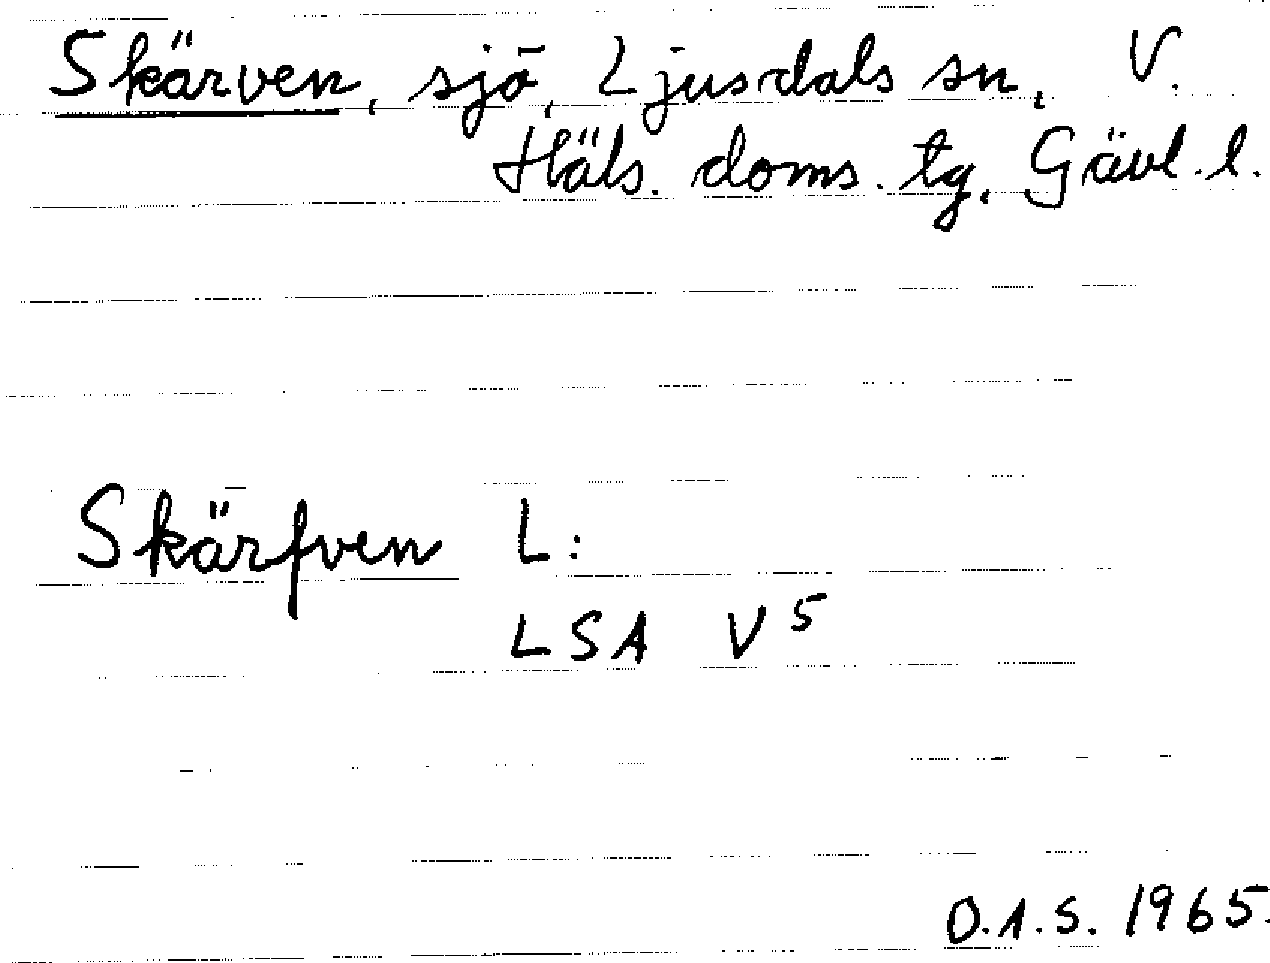 Skärven, sjö, Ljusdals sn, V.
Häls. doms. tg, Gävl. l.
Skärfven L:
LSA V5
O.A.S. 1965.